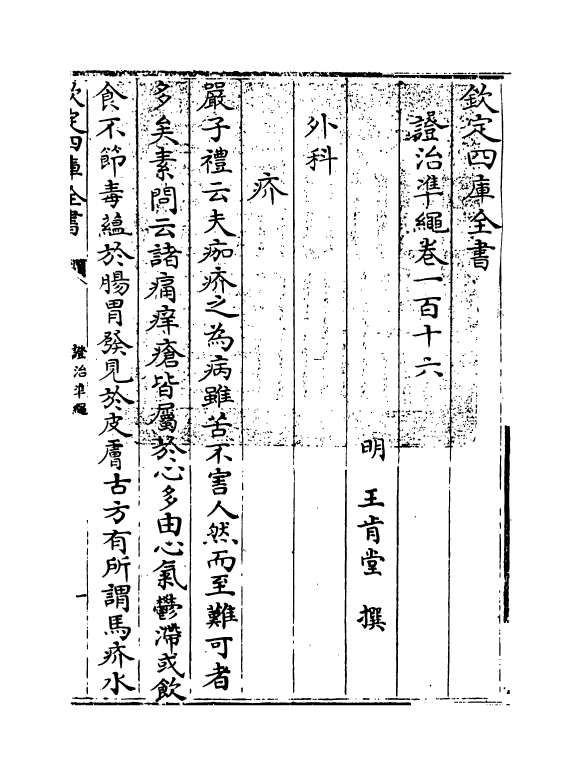 欽定四庫全書
證治準繩卷一百十六
明 王肯堂 撰
外科
疥
嚴子禮云夫痂疥之為病雖苦不害人然而至難可者
多矣素問云諸痛痒瘡皆屬於心多由心氣鬱滯或飲
食不節毒藴於腸胃發見於皮膚古方有所謂馬疥水
欽定四庫全書
證治準繩
一